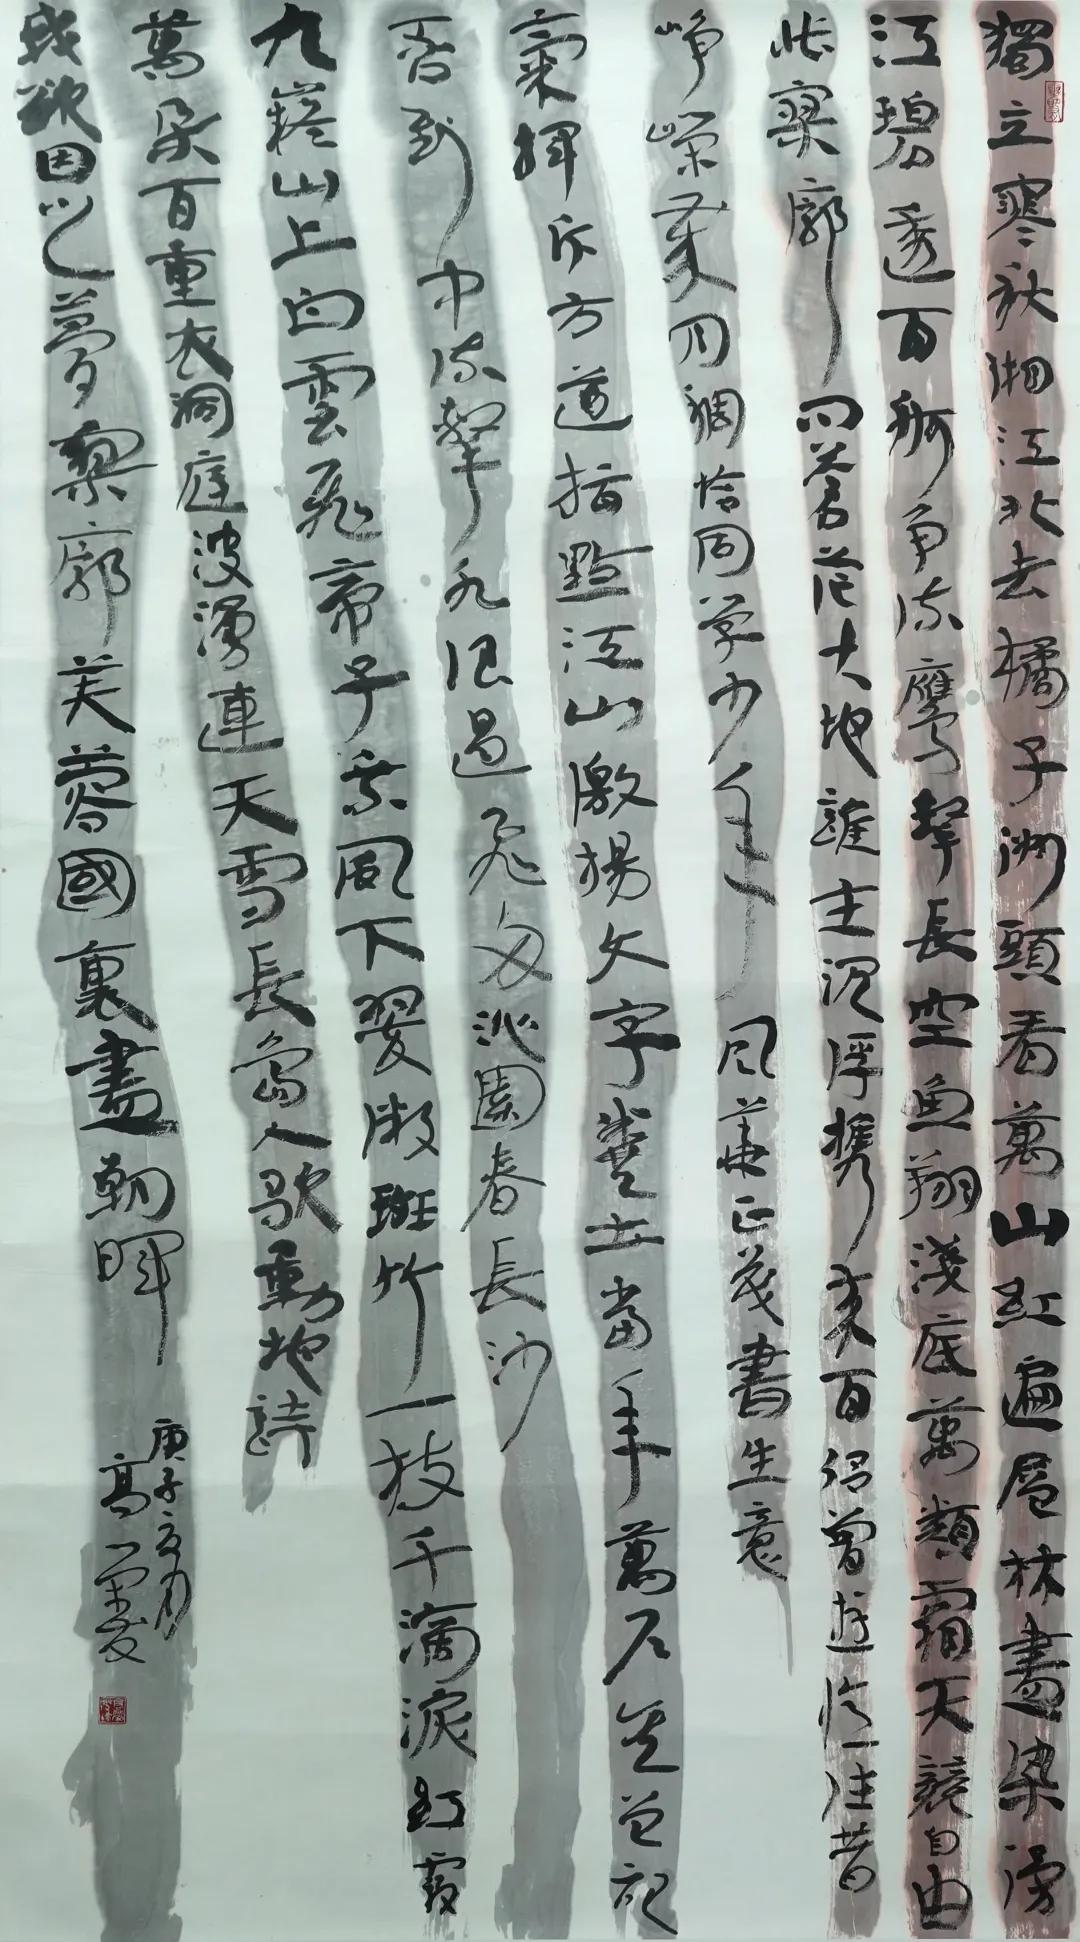 獨立寒秋湘江北去橘子洲頭看萬山紅遍層林盡染漫
江碧透百舸争流鷹擊長空魚翔淺底萬類霜天競自由
悵寥廓問蒼茫大地誰主沉浮攜來百侣曾遊憶往昔
崢嶸歲月稠恰同學少年風華正茂書生意
氣揮斥方遒指點江山激揚文字糞土當年萬户侯曾記
否到中流擊水浪遏飛舟沁園春長沙
九嶷山上白雲飛帝子乘風下翠微斑竹一枝千滴淚紅霞
萬朵百重衣洞庭波湧連天雪長島人歌動地詩
我欲因之夢寥廓芙蓉國裏盡朝暉
庚子
高